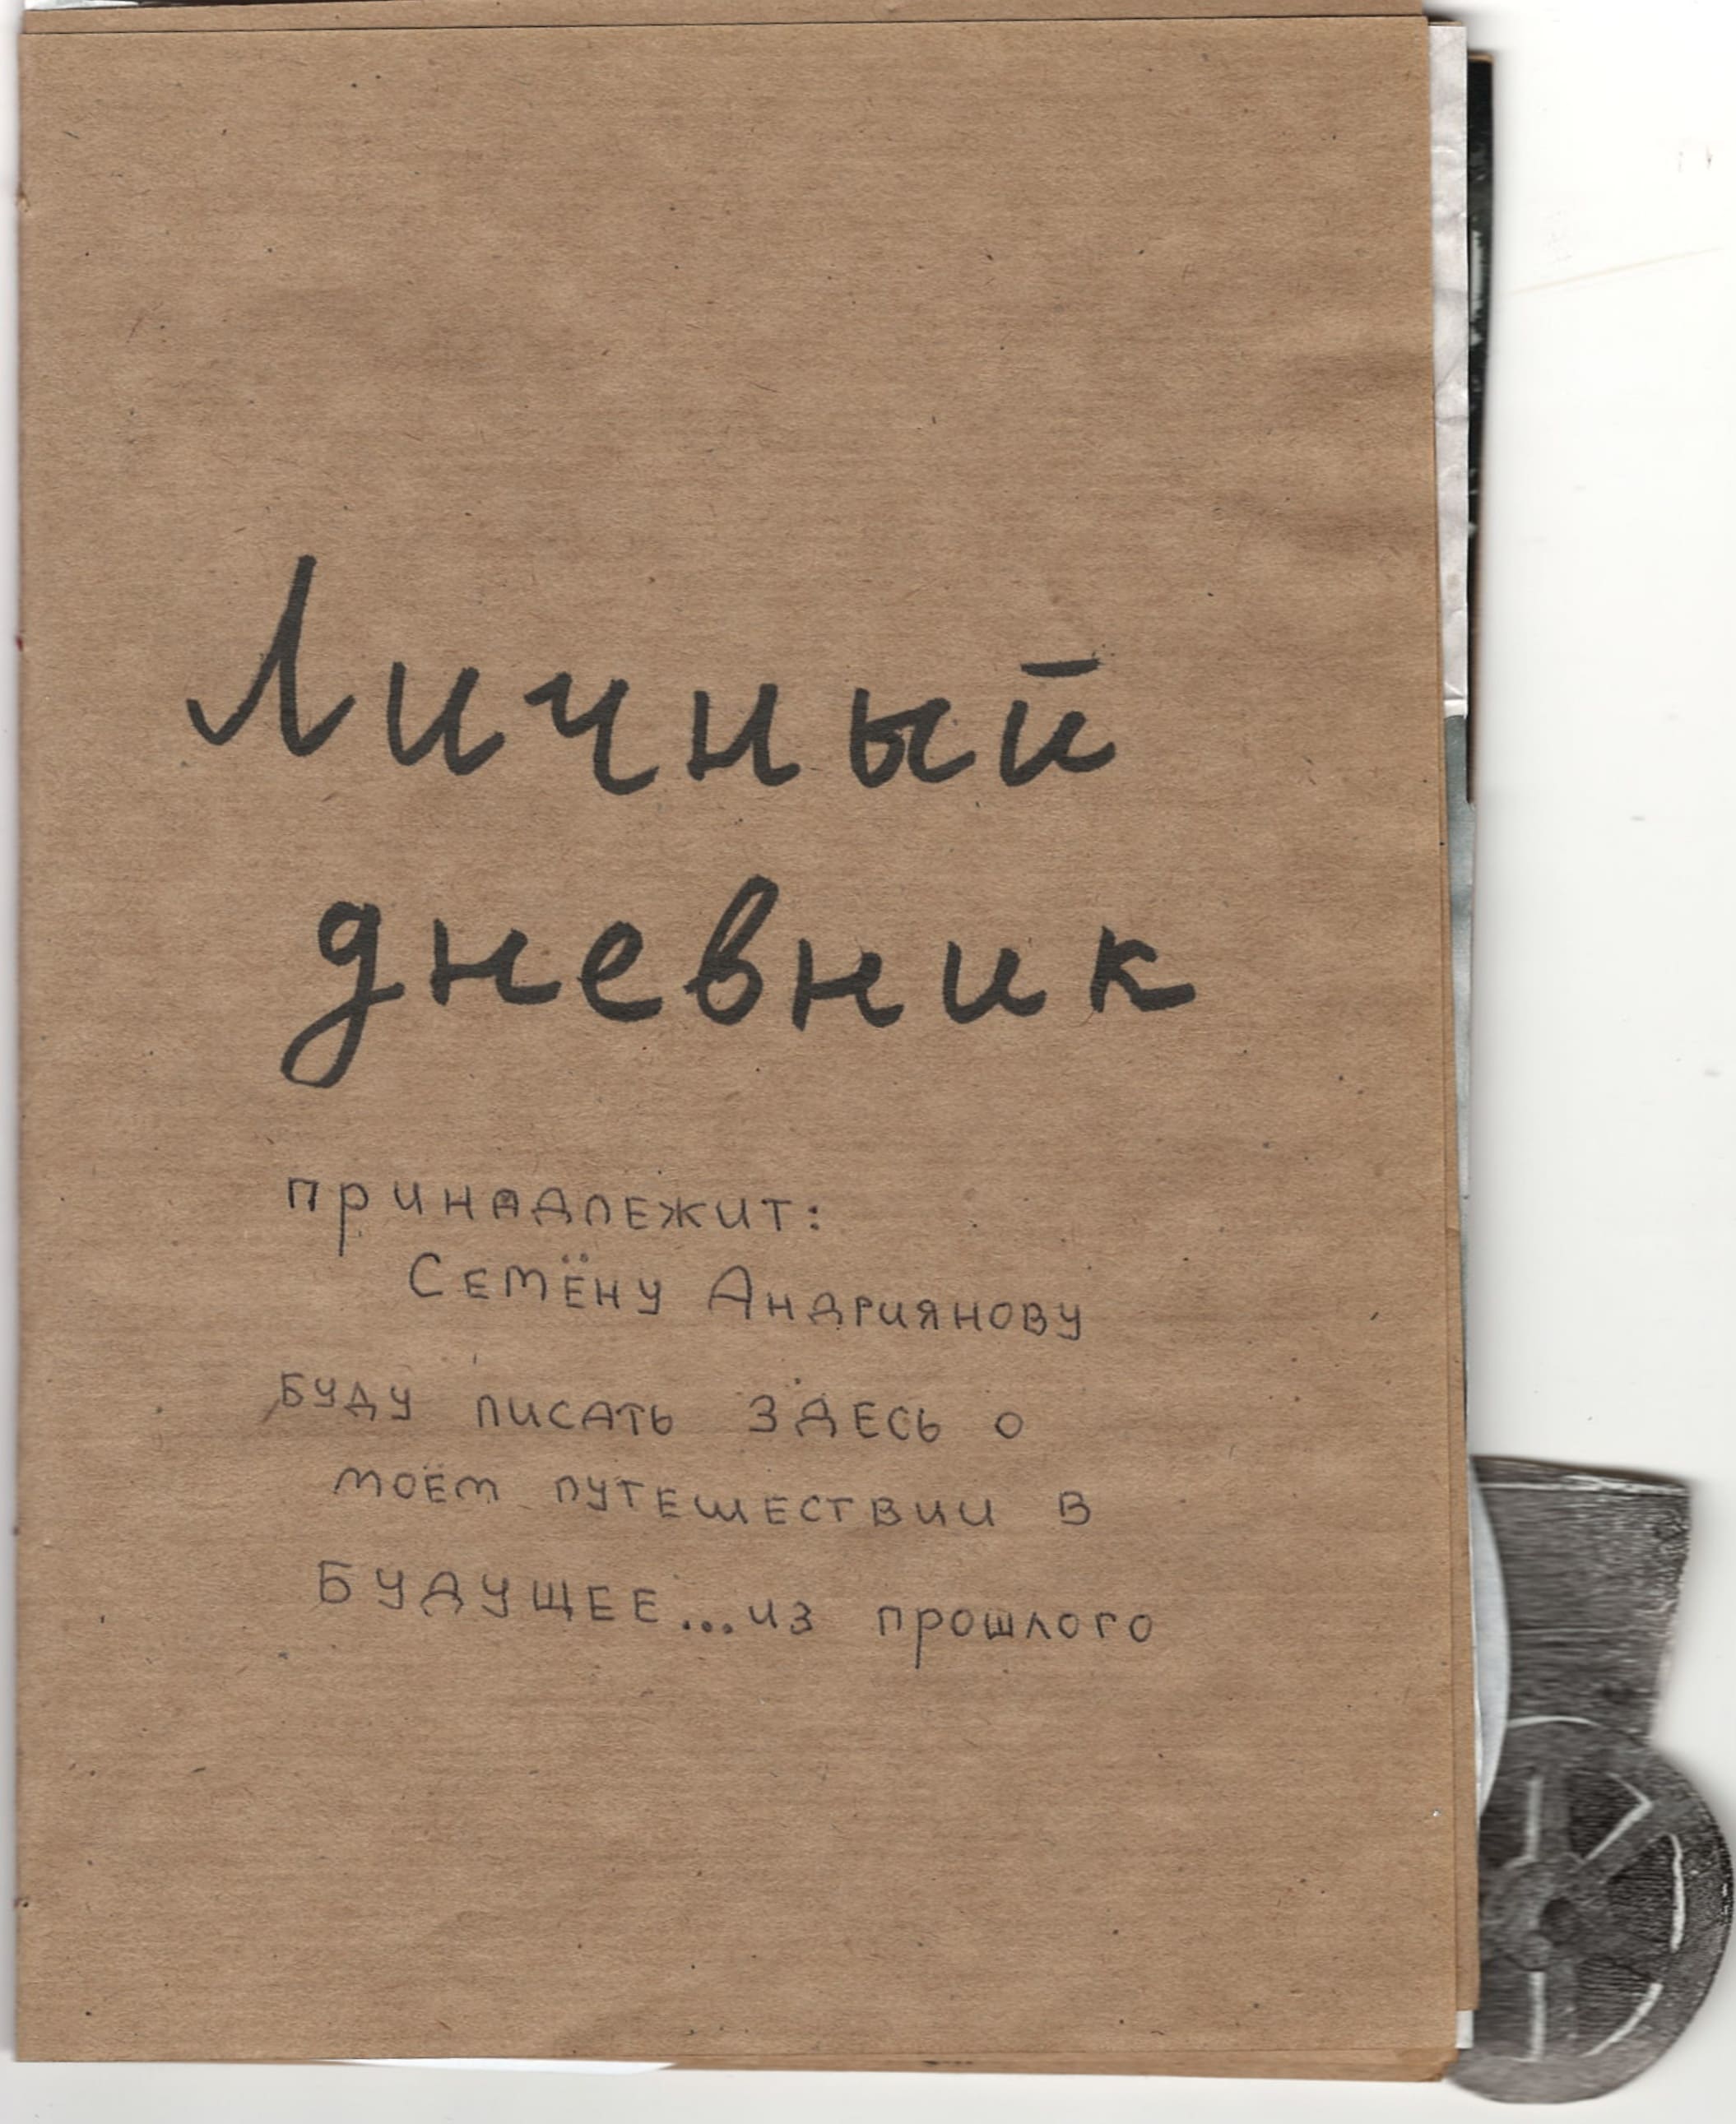 Личный
дневник
принадлежит:
Семёну Андриянову
Буду писать здесь о
моём путешествии в
БУДУЩЕЕ...из прошлого